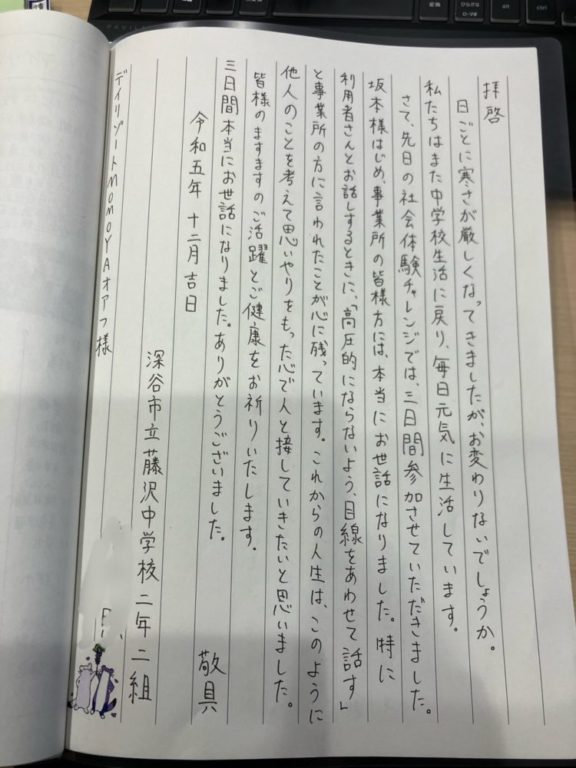 拝啓
日ごとに寒さが厳しくなってきましたが、お変わりないでしょうか。
私たちはまた中学校生活に戻り、毎日元気に生活しています。
さて、先日の社会体験チャレンジでは、三日間参加させていただきました。
坂本様はじめ、事業所の皆様方には、本当にお世話になりました。特に
利用者さんとお話しするときに、「高圧的にならないよう、目線をあわせて話す」
と事業所の方に言われたことが心に残っています。これからの人生は、このように
他人のことを考えて思いやりをもった心で人と接していきたいと思いました。
皆様のますますのご活躍とご健康をお祈りいたします。
三日間本当にお世話になりました。ありがとうございました。
敬具
令和五年 十二月吉日
深谷市立藤沢中学校二年二組
デイリゾートMOMOYAオアフ様